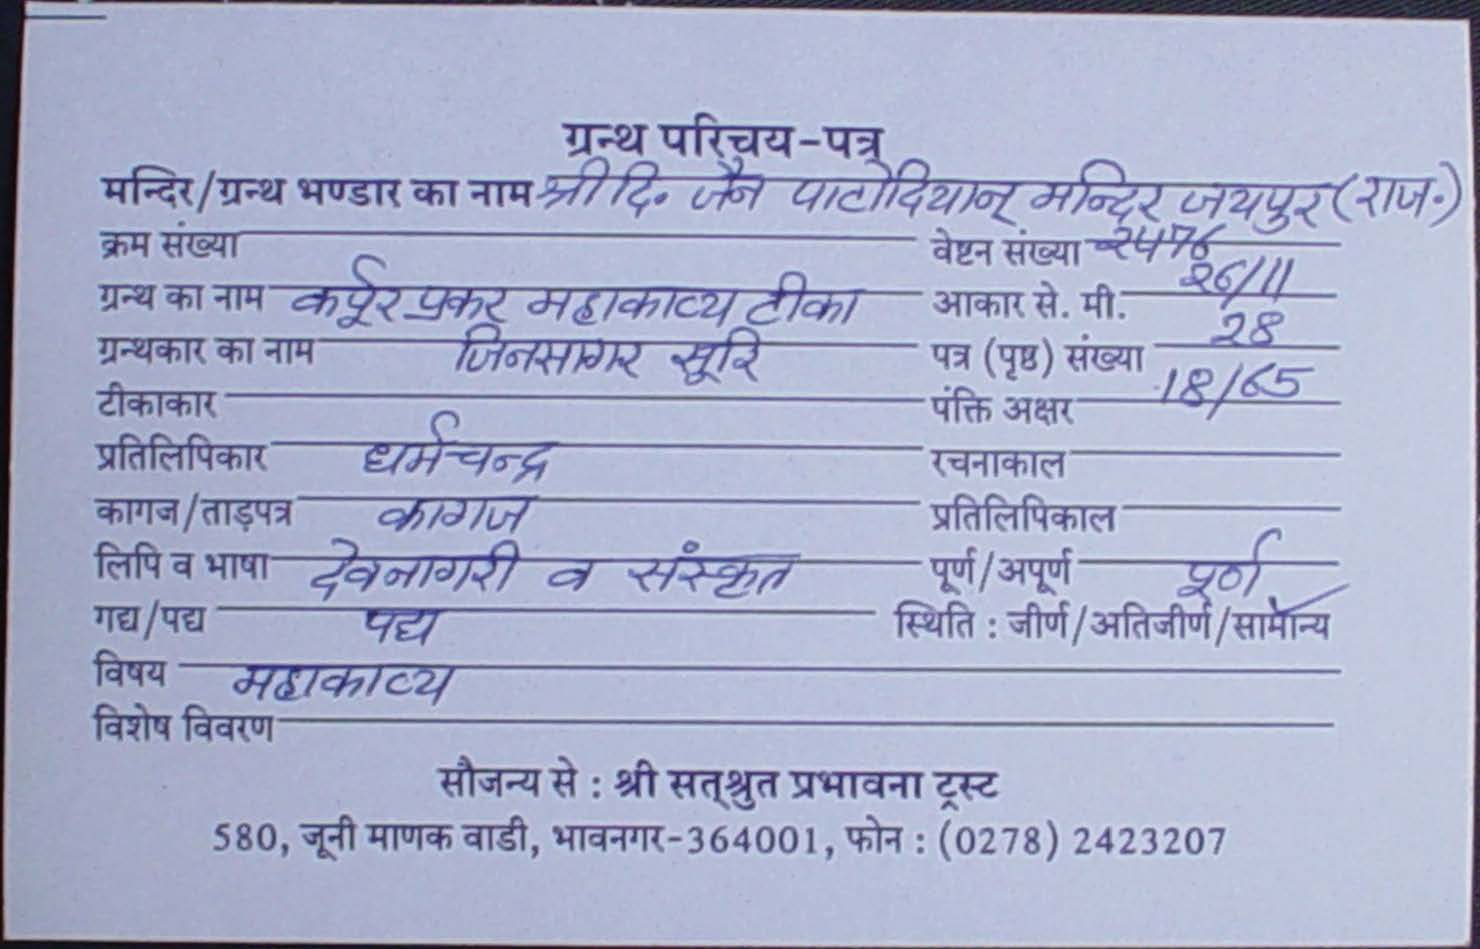 ग्रन्थ परिचय-पत्र
मन्दिर/ग्रन्थ भण्डार का नाम श्री दि. जैन पाटोदियान् मन्दिर जयपुर (राज.)
क्रम संख्या वेष्टन संख्या 2476
ग्रन्थ का नाम कर्पूर प्रकर महाकाव्य टीका आकार से. मी. 26/11
ग्रन्थकार का नाम जिनसागर सूरि पत्र (पृष्ठ) संख्या 28
टीकाकार पंक्ति अक्षर 18/65
प्रतिलिपिकार धर्मचन्द्र रचनाकाल
कागज/ताड़पत्र कागज प्रतिलिपिकाल
लिपि व भाषा देवनागरी व संस्कृत पूर्ण/अपूर्ण पूर्ण
गद्य/पद्य पद्य स्थिति : जीर्ण/अतिजीर्ण/सामान्य
विषय महाकाव्य
विशेष विवरण
सौजन्य से : श्री सत्श्रुत प्रभावना ट्रस्ट
580, जूनी माणक वाडी, भावनगर-364001, फोन : (0278) 2423207